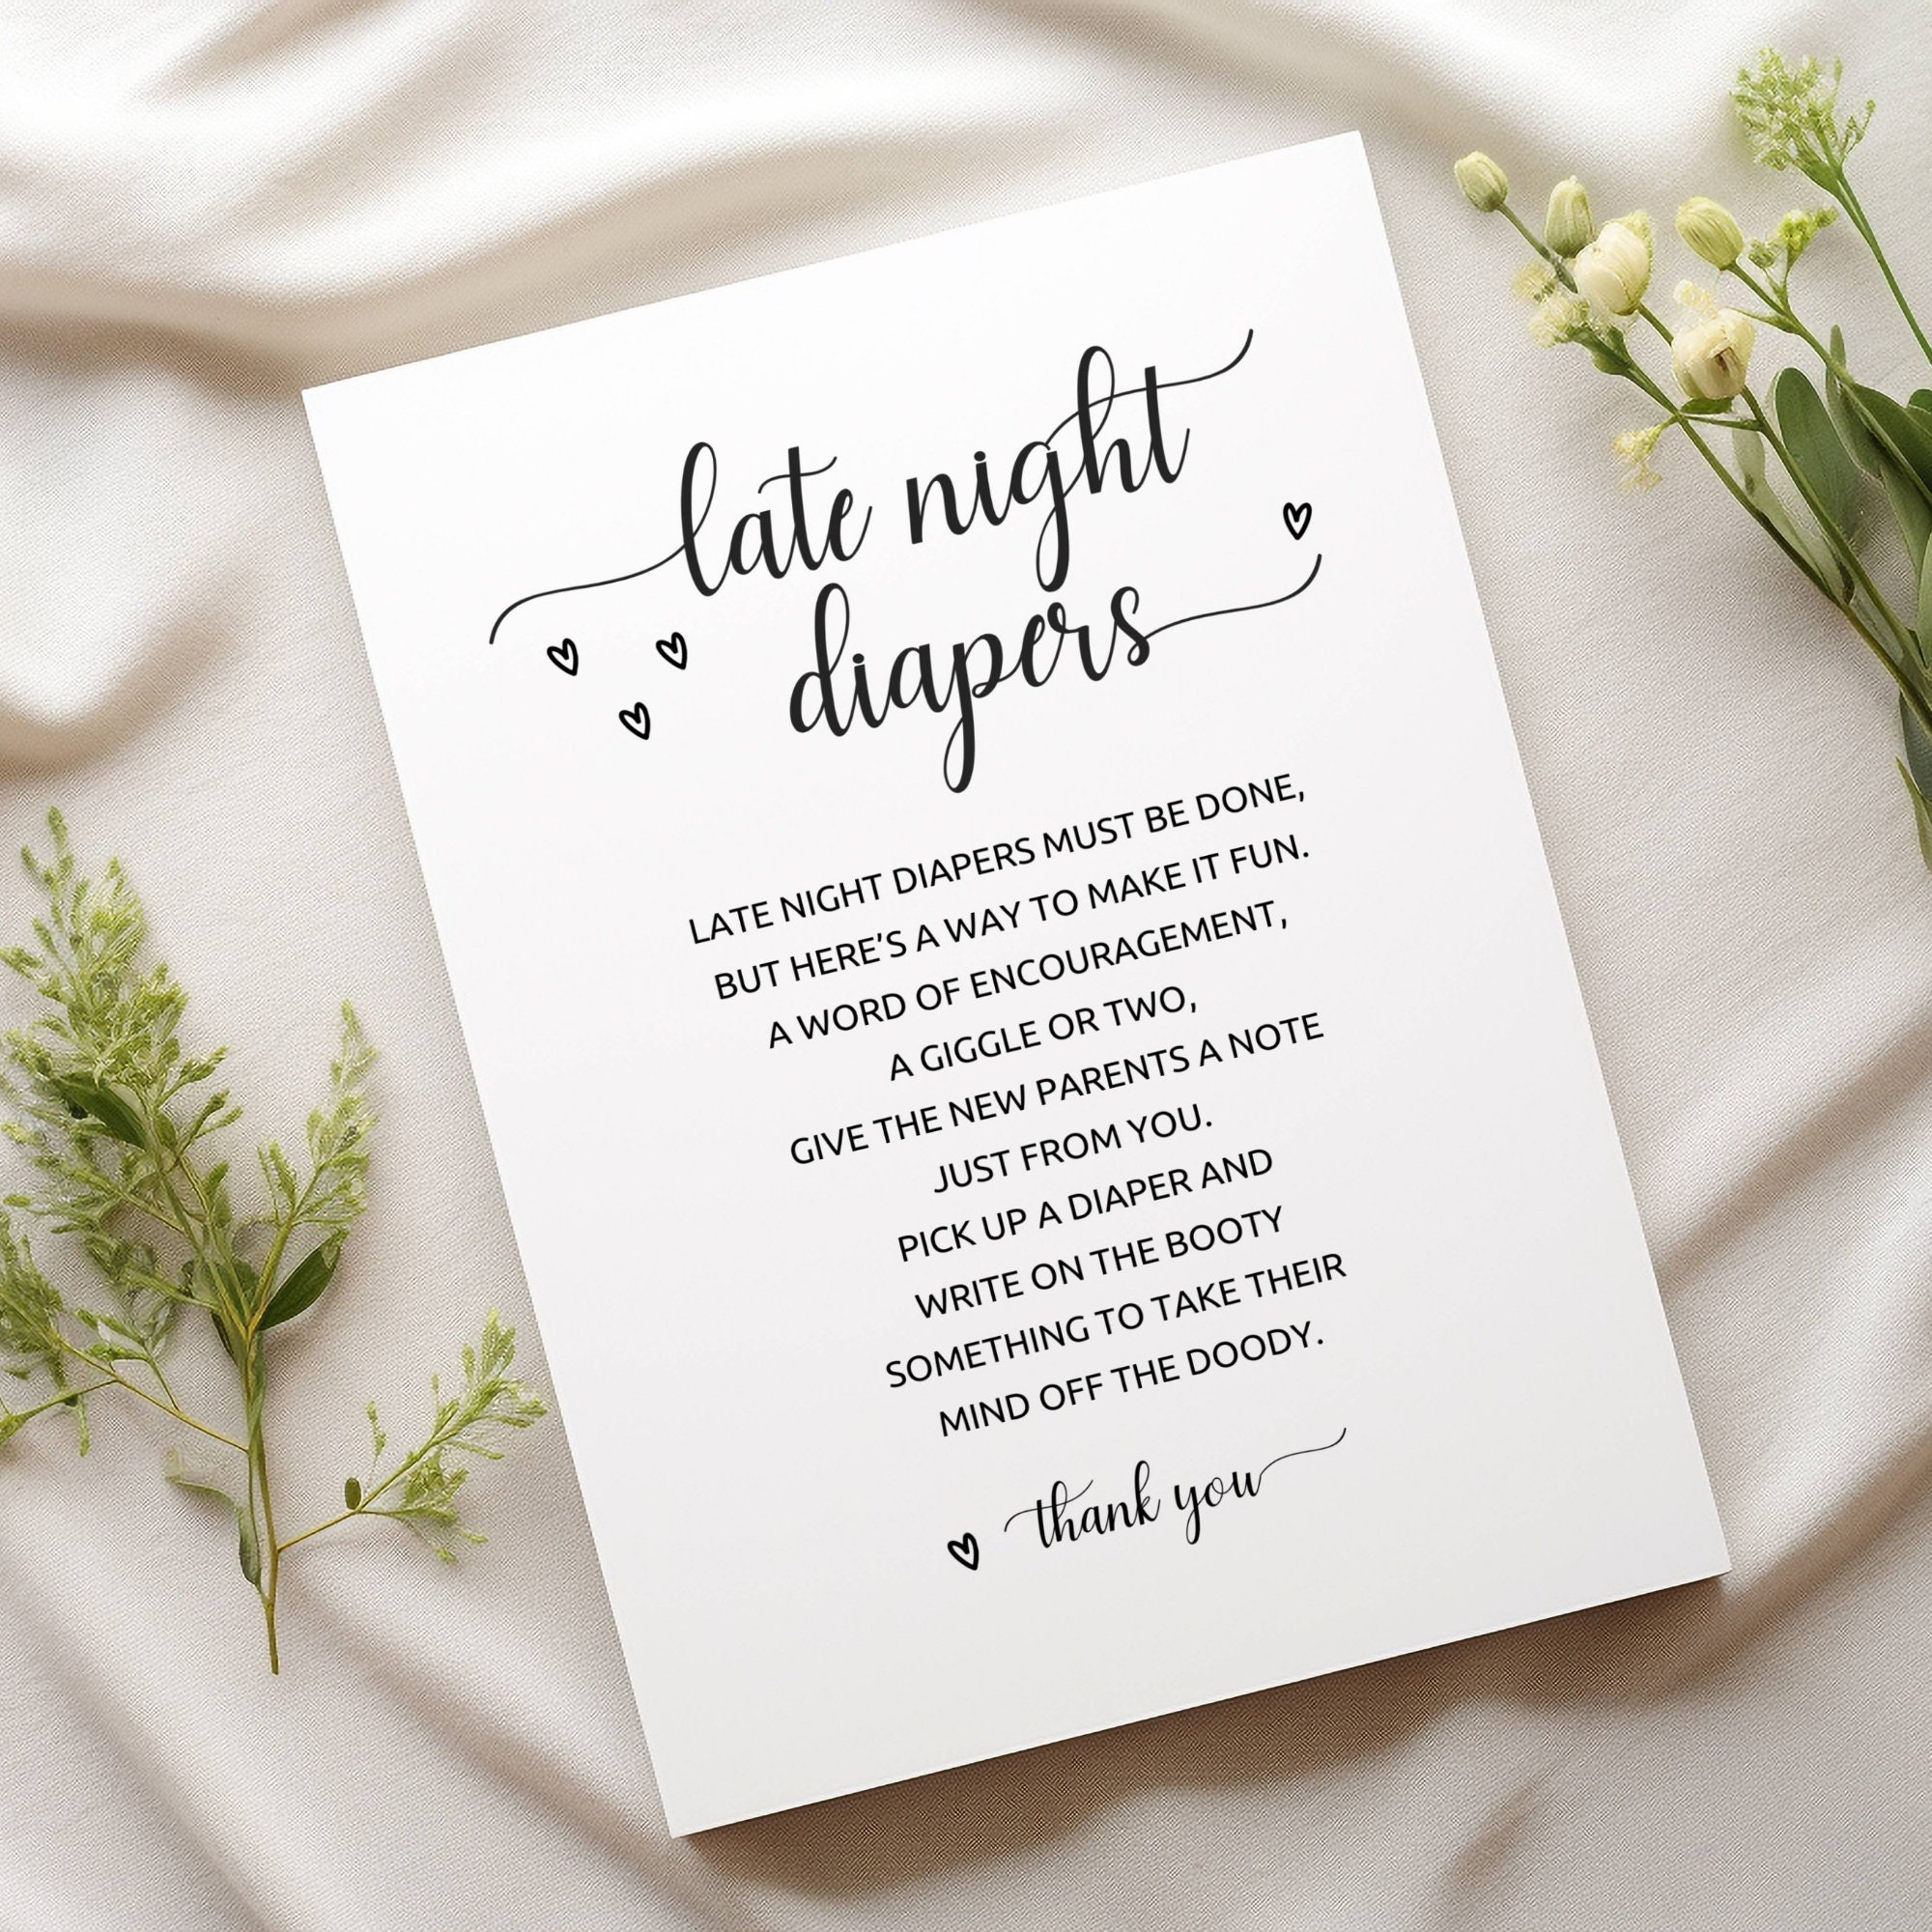 late night
diapers
LATE NIGHT DIAPERS MUST BE DONE,
BUT HERE'S A WAY TO MAKE IT FUN.
A WORD OF ENCOURAGEMENT,
A GIGGLE OR TWO,
GIVE THE NEW PARENTS A NOTE
JUST FROM YOU.
PICK UP A DIAPER AND
WRITE ON THE BOOTY
SOMETHING TO TAKE THEIR
MIND OFF THE DOODY.
thank you